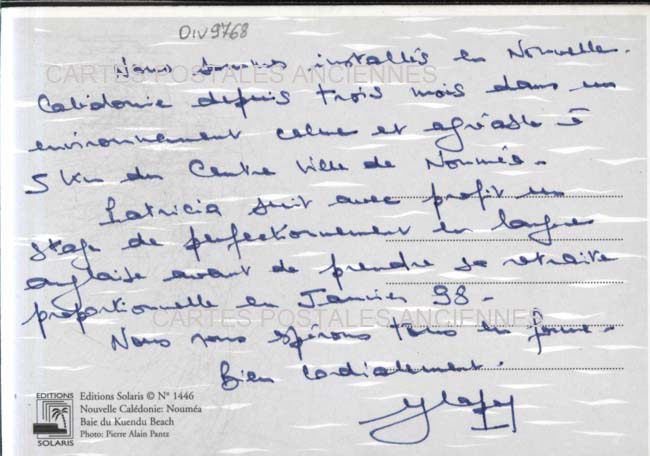 DIV9768
Nous sommes installés en Nouvelle-
CARTES POSTALES ANCIENNES
Calédonie depuis trois mois dans un
environnement calme et agréable à
5 km du Centre Ville de Nouméa.
Patricia suit avec profit un
stage de perfectionnement en langue
anglaise avant de prendre sa retraite
proportionnelle en Janvier 98.
CARTES POSTALES ANCIENNES
Nous vous espérons tous en forme.
Bien cordialement.
EDITIONS
SOLARIS
Editions Solaris © N° 1446
Nouvelle Calédonie: Nouméa
Baie du Kuendu Beach
Photo: Pierre Alain Pantz